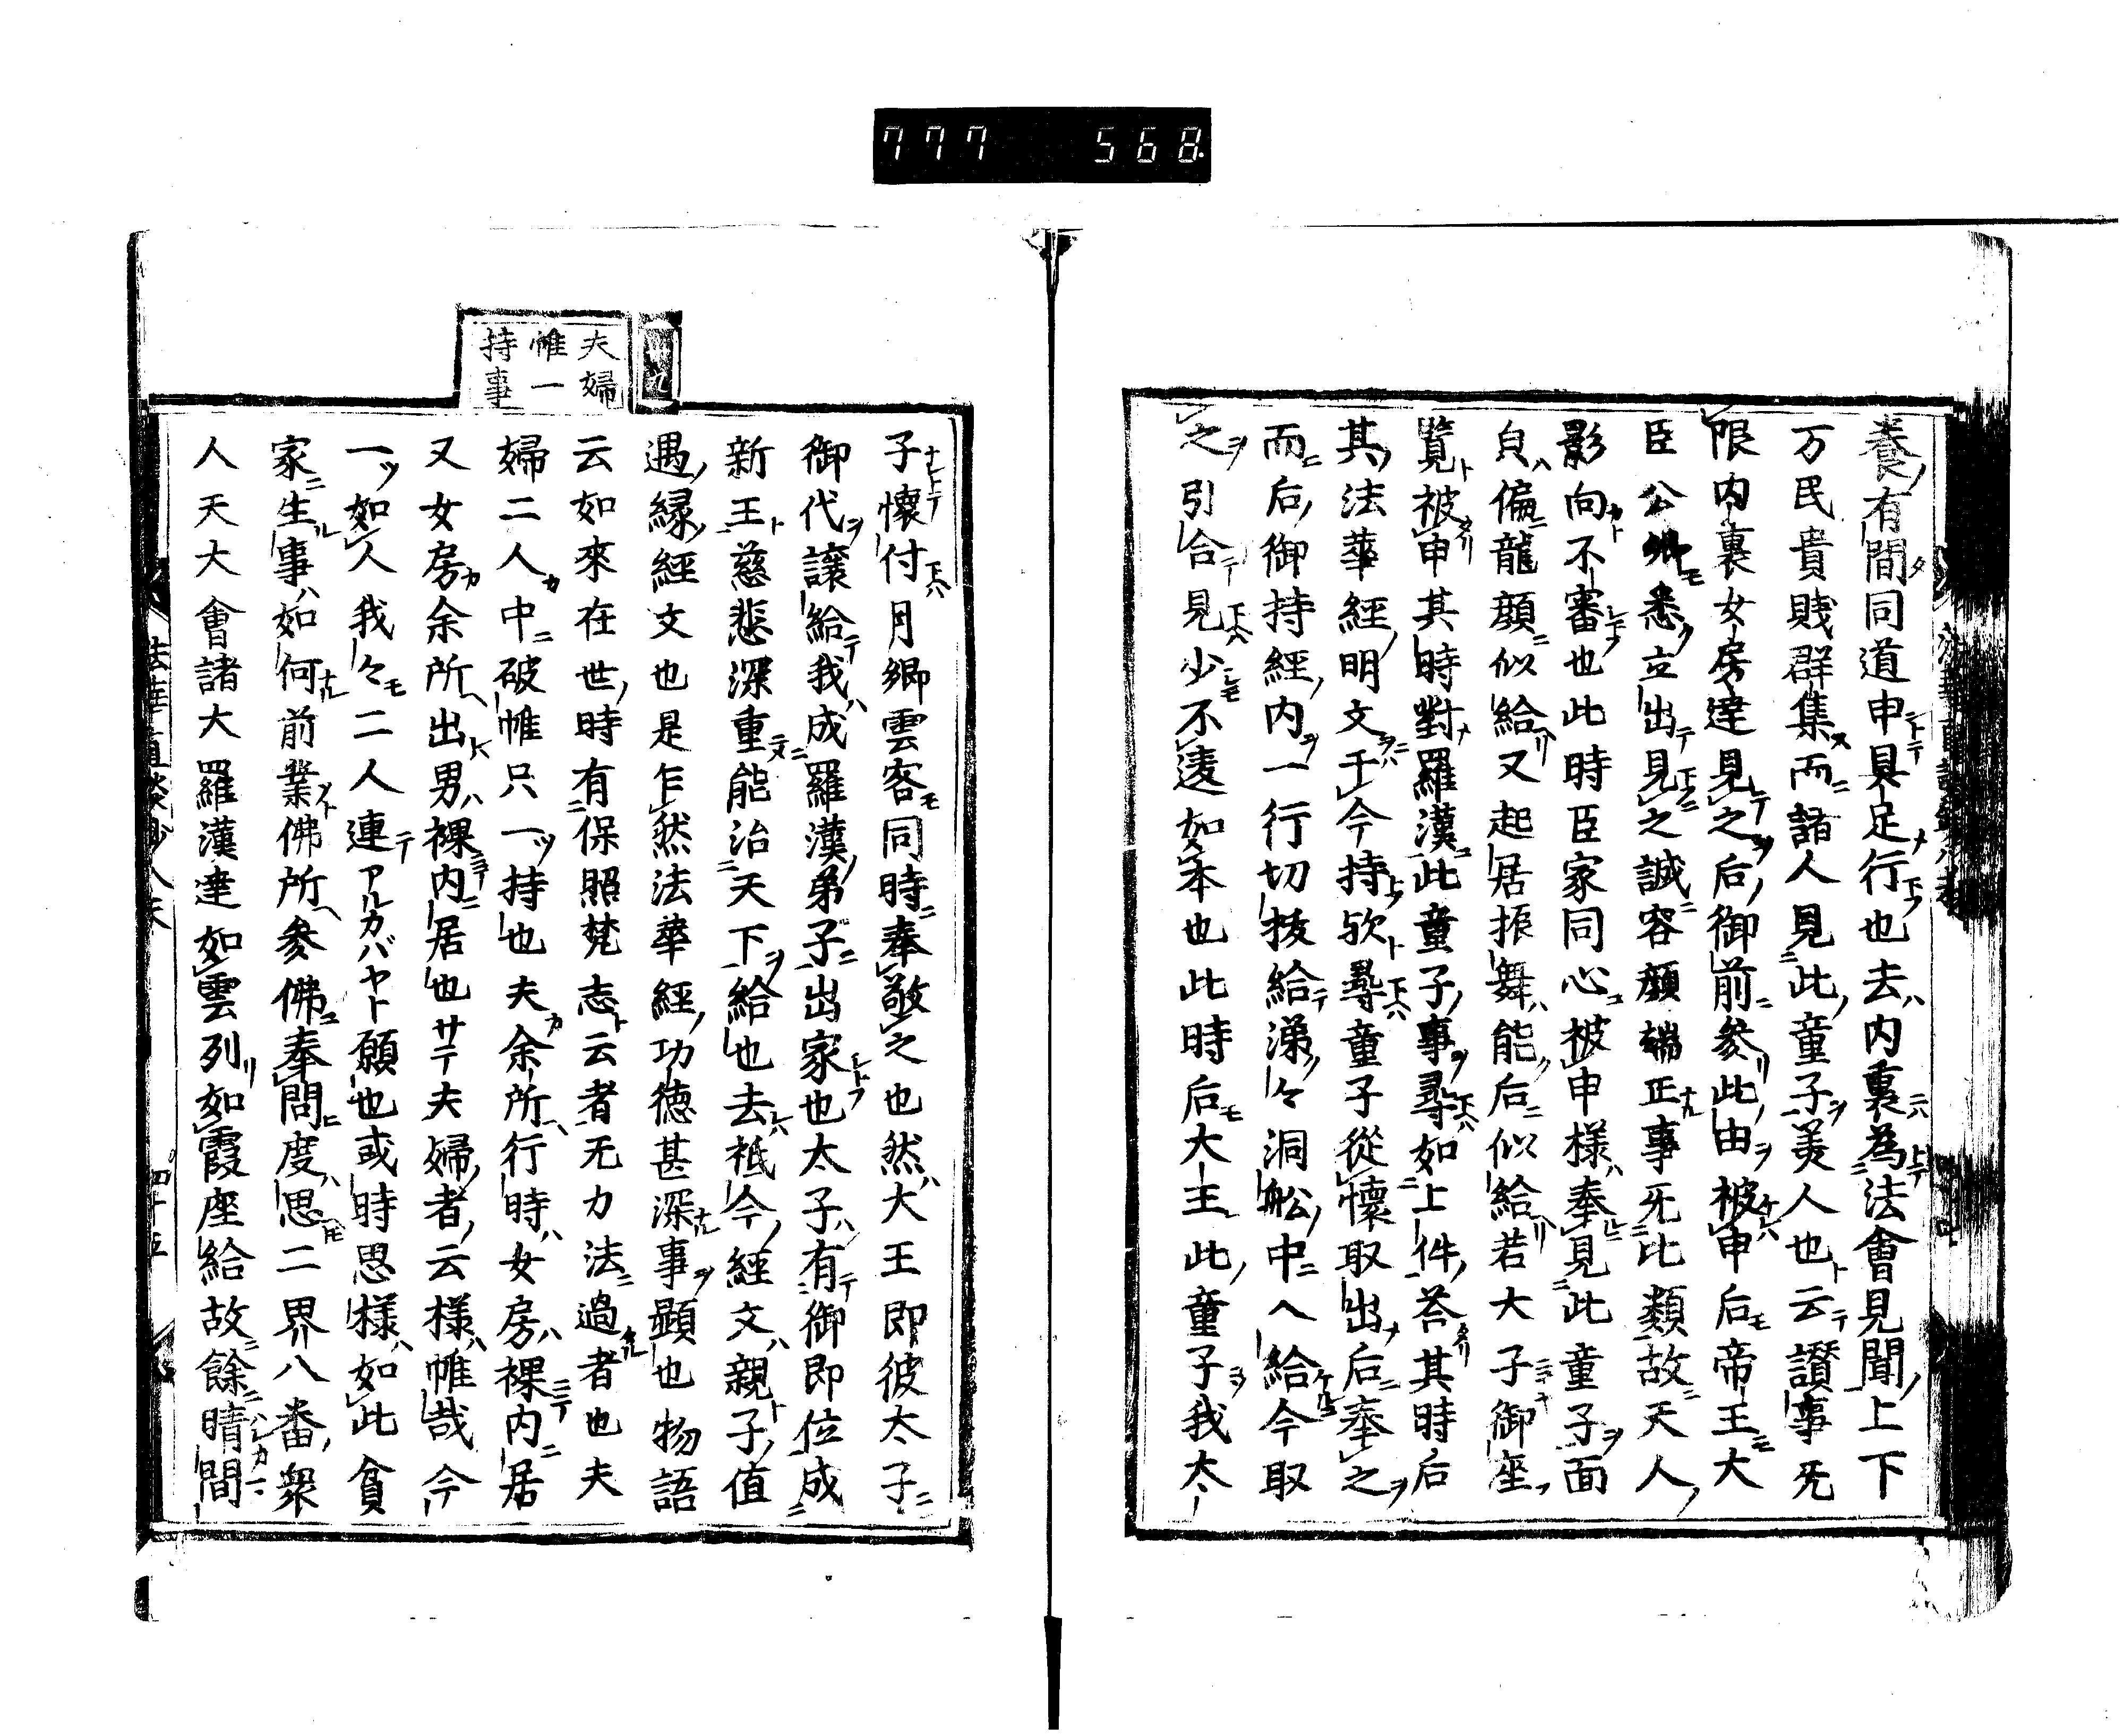 777 568
養有間同道申具足行也去内裏為法會見聞上下
万民貴賎群集而諸人見此童子美人也云讃事无
限内裏女房達見之后御前参此由被申后帝王大
臣公卿悉立出見之誠容顔端正事无比類故天人
影向不審也此時臣家同心被申様奉見此童子面
㒵偏龍顔似給又起居振舞能后似給若大子御座
覧被申其時對羅漢此童子事尋如上件荅其時后
其法華経明文于今持欤尋童子從懐取出后奉之
而后御持経内一行切抜給涕々洞舩中入給今取
之引合見少不違如本也此時后大王此童子我太
子懐付月卿雲客同時奉敬之也然大王即彼太子
御代譲給我成羅漢弟子出家也太子有御即位成
新王慈悲深重能治天下給也去祇今経文親子値
遇縁経文也是乍然法華経功徳甚深事顕也物語
云如來在世時有保照梵志云者无力法過者也夫
婦二人中破帷只一持也夫余所行時女房裸内居
又女房余所出男裸内居也サテ夫婦者云様帷哉今
一ツ如人我々モ二人連アルカバヤト願也或時思様如此貧
家生事如何前業佛所参佛奉問度思二界八番衆
人天大會諸大羅漢達如雲列如霞座給故餘晴間
夫婦
帷一
持事
法華直談鈔八末
四十五